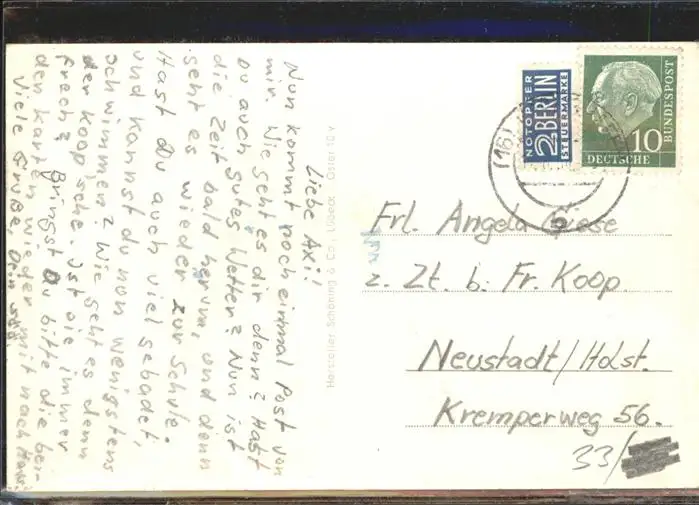 Liebe Axi!
Nun kommt noch einmal Post von
mir. Wie geht es dir denn? Habt
Du auch gutes Wetter? Nun ist
die Zeit bald herum, und denn
geht es wieder zur Schule.
Hast du auch viel gebadet,
und kannst du nun wenigstens
schwimmen? Wie geht es denn
der Koop'sche. Ist sie immer
frech? Bringst Du bitte die bei-
den Karten wieder mit nach Haus.
Viele Grüße, Dein
Hersteller Schöning & Co., Lübeck Oster 10 v
NOTOPFER
2 BERLIN
STEUERMARKE
10
DEUTSCHE
BUNDESPOST
(16)
Frl. Angela Giese
z. Zt. b. Fr. Koop.
Neustadt/Holst.
Kremperweg 56.
33/